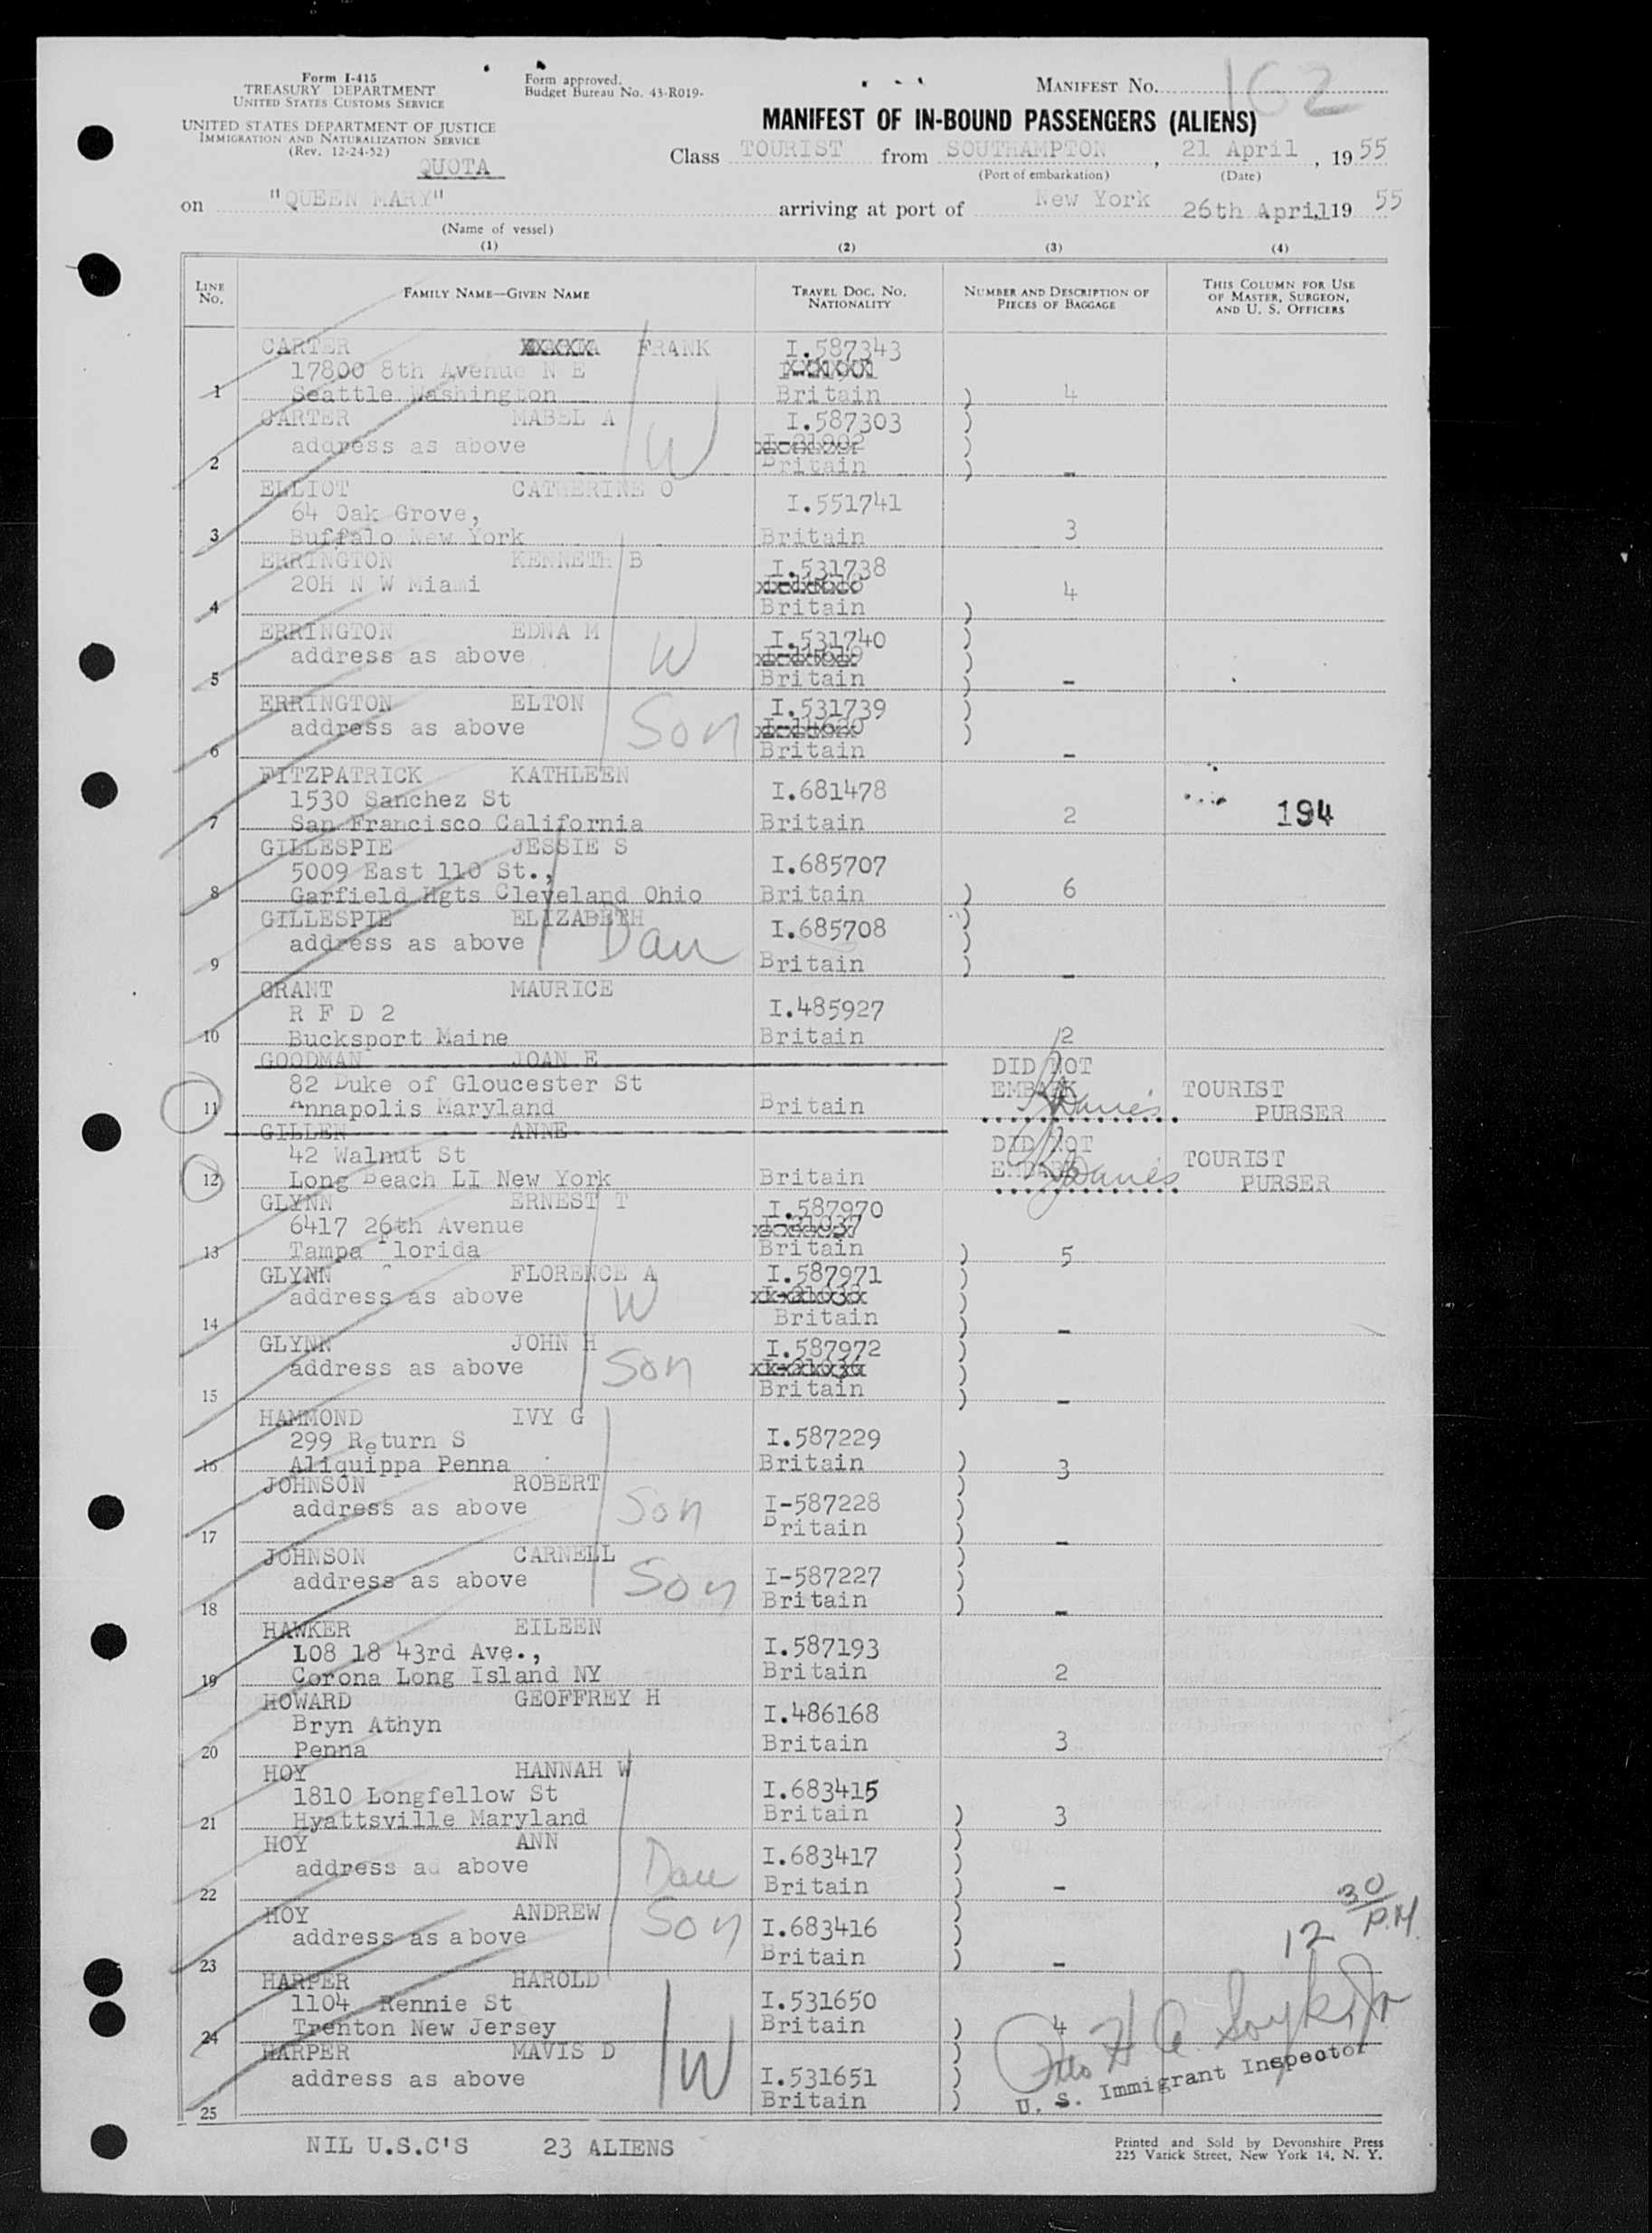 Form I-415
TREASURY DEPARTMENT
UNITED STATES CUSTOMS SERVICE
UNITED STATES DEPARTMENT OF JUSTICE
IMMIGRATION AND NATURALIZATION SERVICE
(Rev. 12-24-52)
QUOTA
Form approved.
Budget Bureau No. 43-R019-
MANIFEST No. 162
MANIFEST OF IN-BOUND PASSENGERS (ALIENS)
Class TOURIST from SOUTHAMPTON, 21 April, 1955
(Port of embarkation) (Date)
on "QUEEN MARY" arriving at port of New York 26th April, 19 55
(Name of vessel)
(1) (2) (3) (4)
LINE No. FAMILY NAME—GIVEN NAME TRAVEL DOC. NO. NATIONALITY NUMBER AND DESCRIPTION OF PIECES OF BAGGAGE THIS COLUMN FOR USE OF MASTER, SURGEON, AND U. S. OFFICERS
CARTER FRANK I.587343
17800 8th Avenue N E
1 Seattle Washington Britain ) 4
CARTER MABEL A I.587303 )
address as above W )
2 Britain ) -
ELLIOT CATHERINE O
64 Oak Grove, I.551741
3 Buffalo New York Britain 3
ERRINGTON KENNETH B I.531738
20H N W Miami 4
4 Britain )
ERRINGTON EDNA M I.531740 )
address as above W )
5 Britain ) -
ERRINGTON ELTON I.531739 )
address as above Son )
6 Britain -
FITZPATRICK KATHLEEN
1530 Sanchez St I.681478
7 San Francisco California Britain 2 194
GILLESPIE JESSIE S
5009 East 110 St., I.685707
8 Garfield Hgts Cleveland Ohio Britain ) 6
GILLESPIE ELIZABETH )
address as above Dau I.685708 )
9 Britain ) -
GRANT MAURICE
R F D 2 I.485927
10 Bucksport Maine Britain 2
GOODMAN JOAN E DID NOT
82 Duke of Gloucester St EMBARK TOURIST
11 Annapolis Maryland Britain Davies PURSER
GILLEN ANNE DID NOT
42 Walnut St EMBARK TOURIST
12 Long Beach LI New York Britain Davies PURSER
GLYNN ERNEST T I.587970
6417 26th Avenue
13 Tampa Florida Britain ) 5
GLYNN FLORENCE A I.587971 )
address as above W )
14 Britain ) -
GLYNN JOHN H I.587972 )
address as above Son )
15 Britain ) -
HAMMOND IVY G
299 Return S I.587229
16 Aliquippa Penna Britain ) 3
JOHNSON ROBERT )
address as above Son I-587228 )
17 Britain ) -
JOHNSON CARNELL )
address as above Son I-587227 )
18 Britain ) -
HAWKER EILEEN
108 18 43rd Ave., I.587193
19 Corona Long Island NY Britain 2
HOWARD GEOFFREY H
Bryn Athyn I.486168
20 Penna Britain 3
HOY HANNAH W
1810 Longfellow St I.683415
21 Hyattsville Maryland Britain ) 3
HOY ANN )
address ad above Dau I.683417 )
22 Britain ) -
HOY ANDREW )
address as above Son I.683416 )
23 Britain ) -
12 30 P.M.
HARPER HAROLD
1104 Rennie St I.531650
24 Trenton New Jersey Britain ) 4
HARPER MAVIS D )
address as above W I.531651 )
25 Britain )
Otto H
U. S. Immigrant Inspector
NIL U.S.C'S 23 ALIENS
Printed and Sold by Devonshire Press
225 Varick Street, New York 14, N. Y.